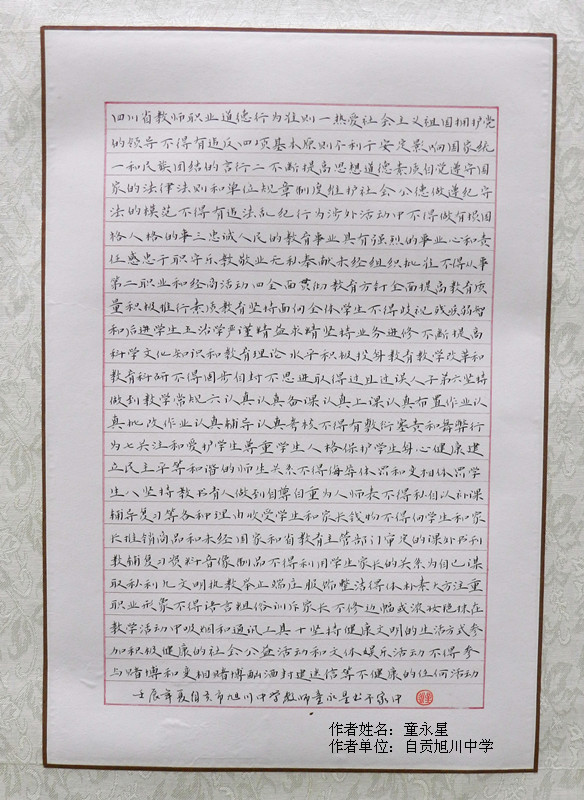 四川省教师职业道德行为准则一热爱社会主义祖国拥护党
的领导不得有违反四项基本原则不利于安定影响国家统
一和民族团结的言行二不断提高思想道德素质自觉遵守国
家的法律法则和单位规章制度维护社会公德做遵纪守
法的模范不得有违法乱纪行为涉外活动中不得做有损国
格人格的事三忠诚人民的教育事业具有强烈的事业心和责
任感忠于职守乐教敬业无私奉献未经组织批准不得从事
第二职业和经商活动四全面贯彻教育方针全面提高教育质
量积极推行素质教育坚持面向全体学生不得歧视残疾弱智
和后进学生五治学严谨精益求精坚持业务进修不断提高
科学文化知识和教育理论水平积极投身教育教学改革和
教育科研不得固步自封不思进取得过且过误人子弟六坚持
做到教学常规六认真认真备课认真上课认真布置作业认
真批改作业认真辅导认真考核不得有敷衍塞责和舞弊行
为七关注和爱护学生尊重学生人格保护学生身心健康建
立民主平等和谐的师生关系不得侮辱体罚和变相体罚学
生八坚持教书育人做到自尊自重为人师表不得私自以补课
辅导复习等各种理由收受学生和家长钱物不得向学生和家
长推销商品和未经国家和省教育主管部门审定的课外书刊
教辅复习资料音像制品不得利用学生家长的关系为自己谋
取私利九文明执教举止端庄服饰整洁得体朴素大方注重
职业形象不得语言粗俗训斥家长不修边幅或浓妆艳抹在
教学活动中吸烟和通讯工具十坚持健康文明的生活方式参
加积极健康的社会公益活动和文体娱乐活动不得参
与赌博和变相赌博酗酒封建迷信等不健康的任何活动
壬辰年夏自贡市旭川中学教师童永星书于家中
作者姓名：童永星
作者单位：自贡旭川中学